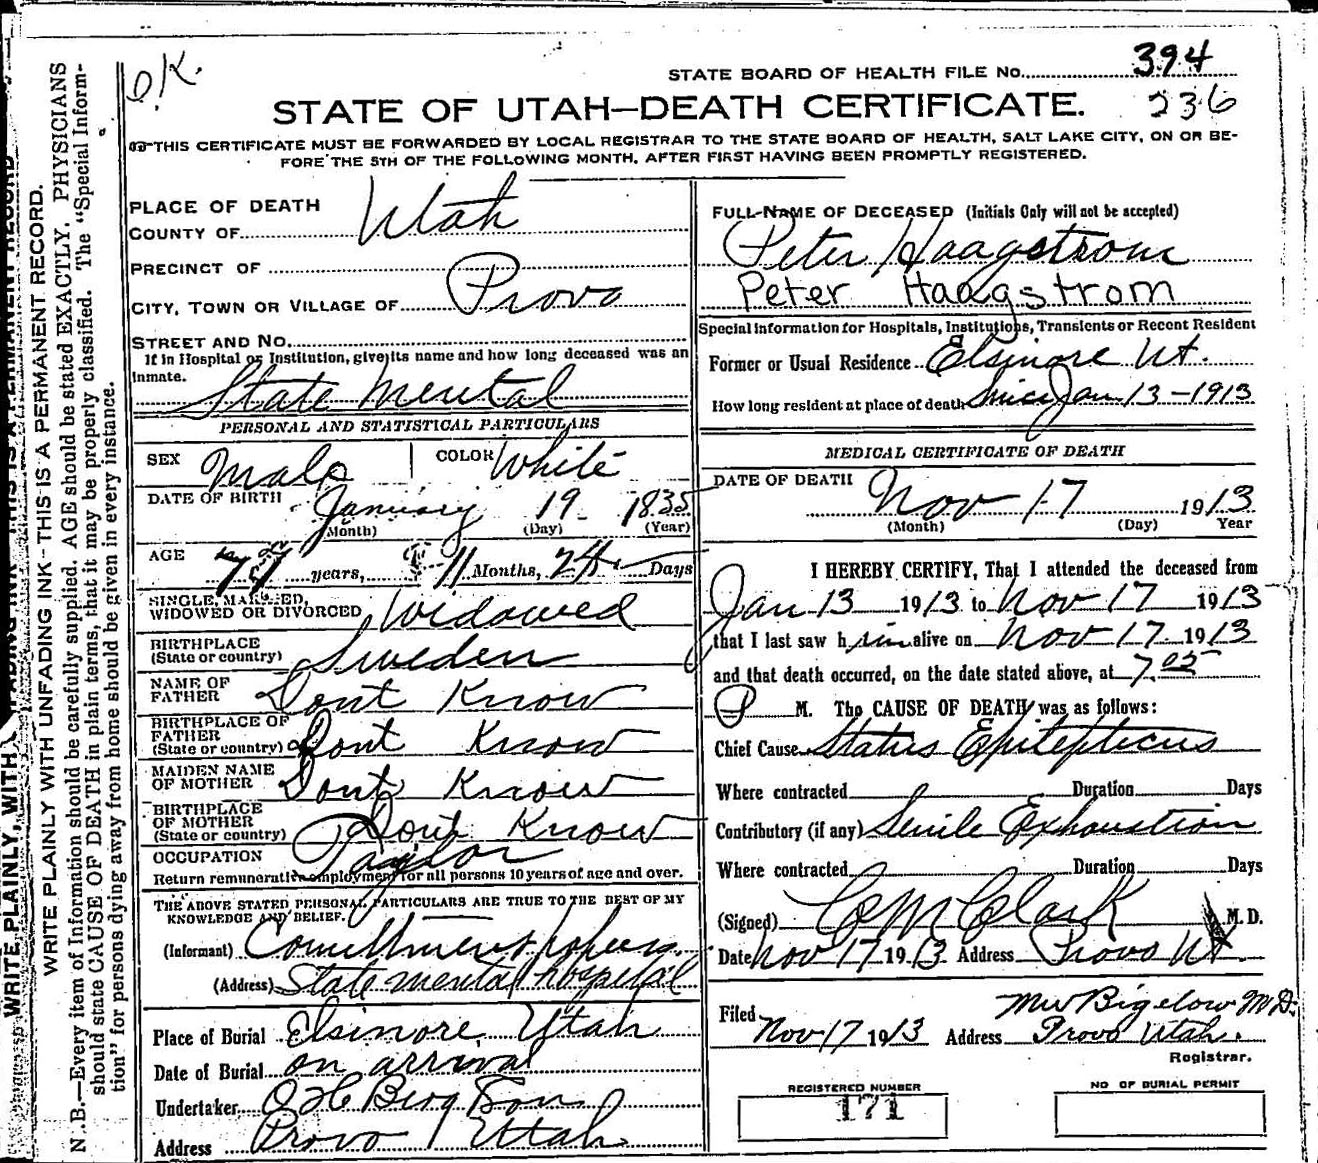 O.K.
STATE BOARD OF HEALTH FILE No. 394
STATE OF UTAH—DEATH CERTIFICATE. 236
THIS CERTIFICATE MUST BE FORWARDED BY LOCAL REGISTRAR TO THE STATE BOARD OF HEALTH, SALT LAKE CITY, ON OR BE-
FORE THE 5TH OF THE FOLLOWING MONTH, AFTER FIRST HAVING BEEN PROMPTLY REGISTERED.
WRITE PLAINLY, WITH
WRITE PLAINLY WITH UNFADING INK—THIS IS A PERMANENT RECORD.
N. B.—Every item of Information should be carefully supplied. AGE should be stated EXACTLY. PHYSICIANS
should state CAUSE OF DEATH in plain terms, that it may be properly classified. The "Special Inform-
tion" for persons dying away from home should be given in every instance.
PLACE OF DEATH
COUNTY OF Utah
PRECINCT OF
CITY, TOWN OR VILLAGE OF Provo
STREET AND No.
If in Hospital or Institution, give its name and how long deceased was an
inmate.
State Mental
PERSONAL AND STATISTICAL PARTICULARS
SEX Male COLOR White
DATE OF BIRTH January 19 1835
(Month) (Day) (Year)
AGE years, 11 Months, Days
SINGLE, MARRIED,
WIDOWED OR DIVORCED Widowed
BIRTHPLACE
(State or country) Sweden
NAME OF
FATHER Dont Know
BIRTHPLACE OF
FATHER
(State or country) Dont Know
MAIDEN NAME
OF MOTHER Dont Know
BIRTHPLACE
OF MOTHER
(State or country) Dont Know
OCCUPATION Taylor
Return remunerative employment for all persons 10 years of age and over.
THE ABOVE STATED PERSONAL PARTICULARS ARE TRUE TO THE BEST OF MY
KNOWLEDGE AND BELIEF.
(Informant) Comittment papers
(Address) State mental hospital
Place of Burial Elsinore, Utah
Date of Burial on arrival
Undertaker O H Berg & Son
Address Provo Utah
FULL NAME OF DECEASED (Initials Only will not be accepted)
Peter Haagstrom
Peter Haagstrom
Special Information for Hospitals, Institutions, Transients or Recent Resident
Former or Usual Residence Elsinore Ut.
How long resident at place of death Since Jan 13-1913
MEDICAL CERTIFICATE OF DEATH
DATE OF DEATH Nov 17 1913
(Month) (Day) Year
I HEREBY CERTIFY, That I attended the deceased from
Jan 13 1913 to Nov 17 1913
that I last saw h im alive on Nov 17 1913
and that death occurred, on the date stated above, at 7.05
P M. The CAUSE OF DEATH was as follows:
Chief Cause Status Epilepticus
Where contracted Duration Days
Contributory (if any) Senile Exhaustion
Where contracted Duration Days
(Signed) C M Clark M. D.
Date Nov 17 1913 Address Provo Ut
Filed MW Bigelow M.D.
Nov 17 1913 Address Provo Utah.
Registrar.
REGISTERED NUMBER
171
NO OF BURIAL PERMIT